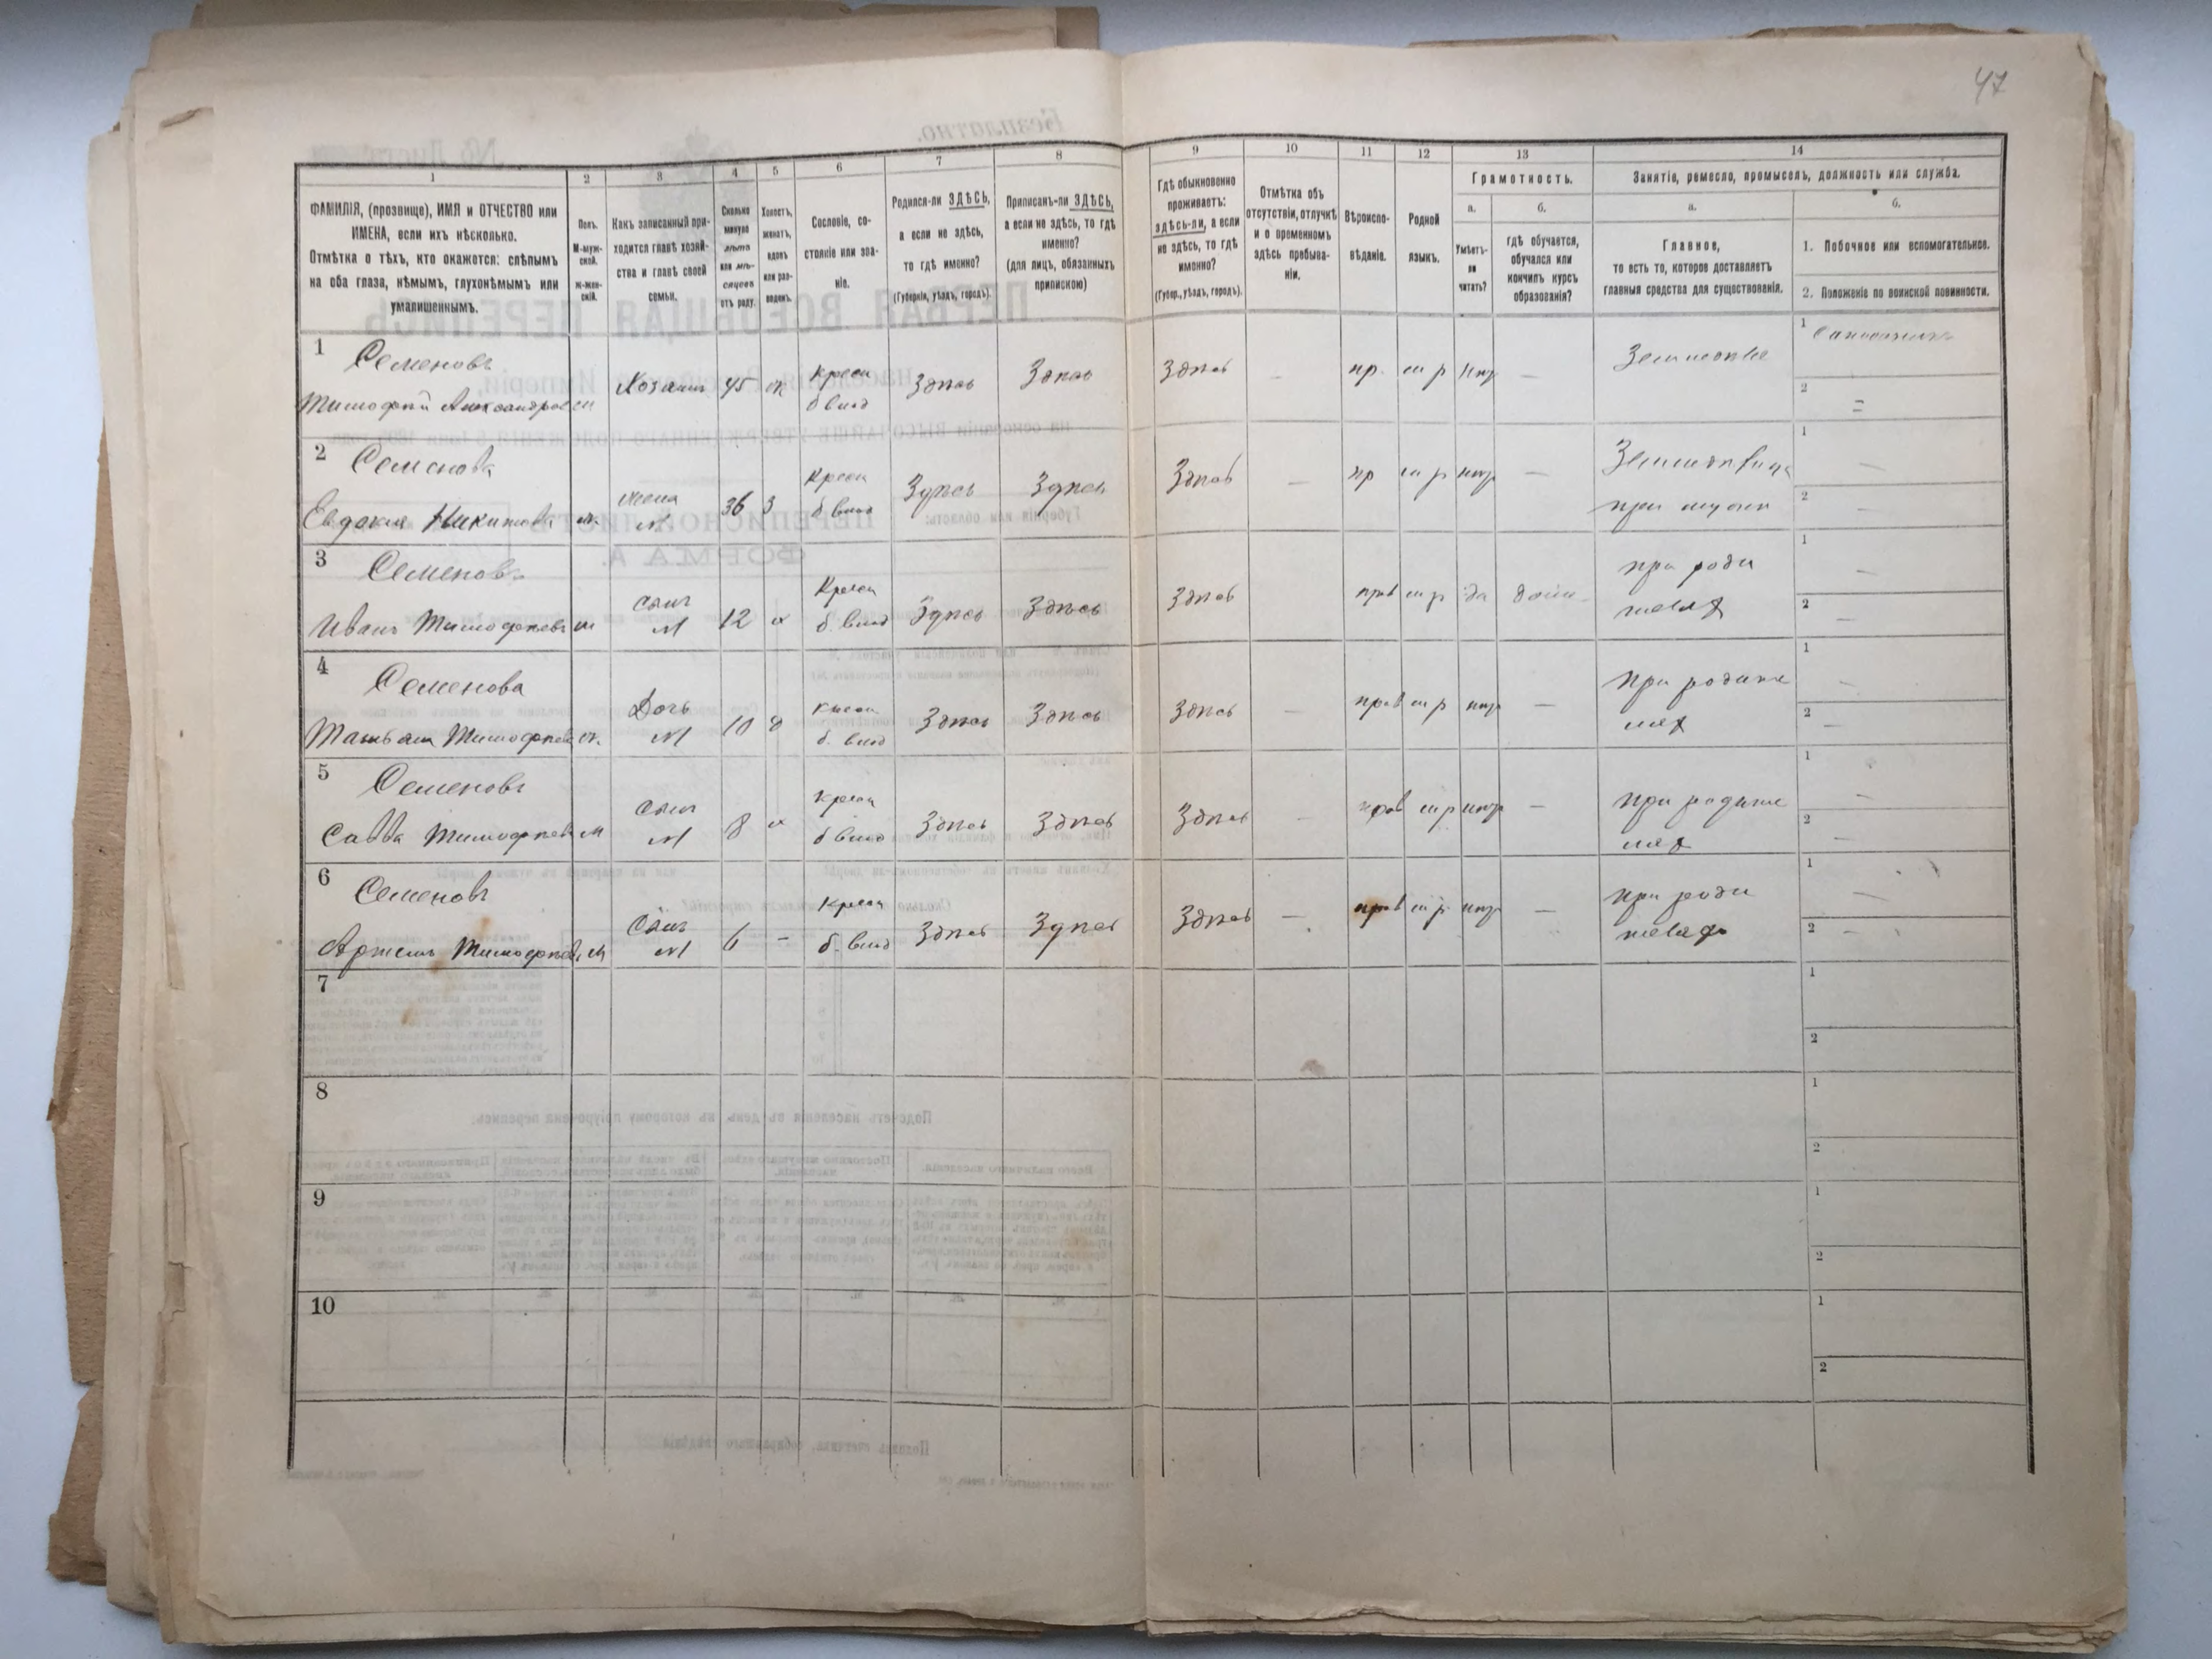 47
1
2
3
4
5
6
7
8
9
10
11
12
13
14
ФАМИЛІЯ, (прозвище), ИМЯ и ОТЧЕСТВО или
ИМЕНА, если ихъ нѣсколько.
Отмѣтка о тѣхъ, кто окажется: слѣпымъ
на оба глаза, нѣмымъ, глухонѣмымъ или
умалишеннымъ.
Полъ.
М-муж-
ской.
ж-жен-
скій.
Какъ записанный при-
ходится главѣ хозяй-
ства и главѣ своей
семьи.
Сколько
минуло
лѣтъ
или мѣ-
сяцевъ
отъ роду.
Холостъ,
женатъ,
вдовъ
или раз-
веденъ.
Сословіе, со-
стояніе или зва-
ніе.
Родился-ли ЗДѢСЬ,
а если не здѣсь,
то гдѣ именно?
(Губернія, уѣздъ, городъ).
Приписанъ-ли ЗДѢСЬ,
а если не здѣсь, то гдѣ
именно?
(для лицъ, обязанныхъ
припискою)
Гдѣ обыкновенно
проживаетъ:
здѣсь-ли, а если
не здѣсь, то гдѣ
именно?
(Губер., уѣздъ, городъ).
Отмѣтка объ
отсутствіи, отлучкѣ
и о временномъ
здѣсь пребыва-
ніи.
Вѣроиспо-
вѣданіе.
Родной
языкъ.
Грамотность.
а.
Умѣетъ-
ли
читать?
б.
гдѣ обучается,
обучался или
кончилъ курсъ
образованія?
Занятіе, ремесло, промыселъ, должность или служба.
а.
Главное,
то есть то, которое доставляетъ
главныя средства для существованія.
б.
1. Побочное или вспомогательное.
2. Положеніе по воинской повинности.
1
Семеновъ
Тимофѣй Александров м Хозяинъ 45 ж Кресн б влад Здѣсь Здѣсь Здѣсь — пр. м р нѣт —
1
2
2
Семенова
Евдокия Никитова ж. жена М 36 З Кресн б влад Здѣсь Здѣсь Здѣсь — пр м р нѣт —
при мужѣ
1 —
2 —
3
Семеновъ
Иванъ Тимофѣевъ м сынъ М 12 х Кресн б. влад Здѣсь Здѣсь Здѣсь прав м р да дома
при роди
теляхъ
1 —
2 —
4
Семенова
Татьяна Тимофѣев ж. Дочь М 10 д Кресн б. влад Здѣсь Здѣсь Здѣсь — прав м р нѣт —
при родите
лях
1 —
2 —
5
Семеновъ
Савва Тимофѣев м сынъ М 8 х Кресн б влад Здѣсь Здѣсь Здѣсь — прав м р нѣт —
при родите
лях
1 —
2 —
6
Семеновъ
Артемъ Тимофѣев. м Сынъ М 6 — Кресн б. влад Здѣсь Здѣсь Здѣсь — прав м р нѣт —
при роди
телях
1 —
2 —
7
1
2
8
1
2
9
1
2
10
1
2